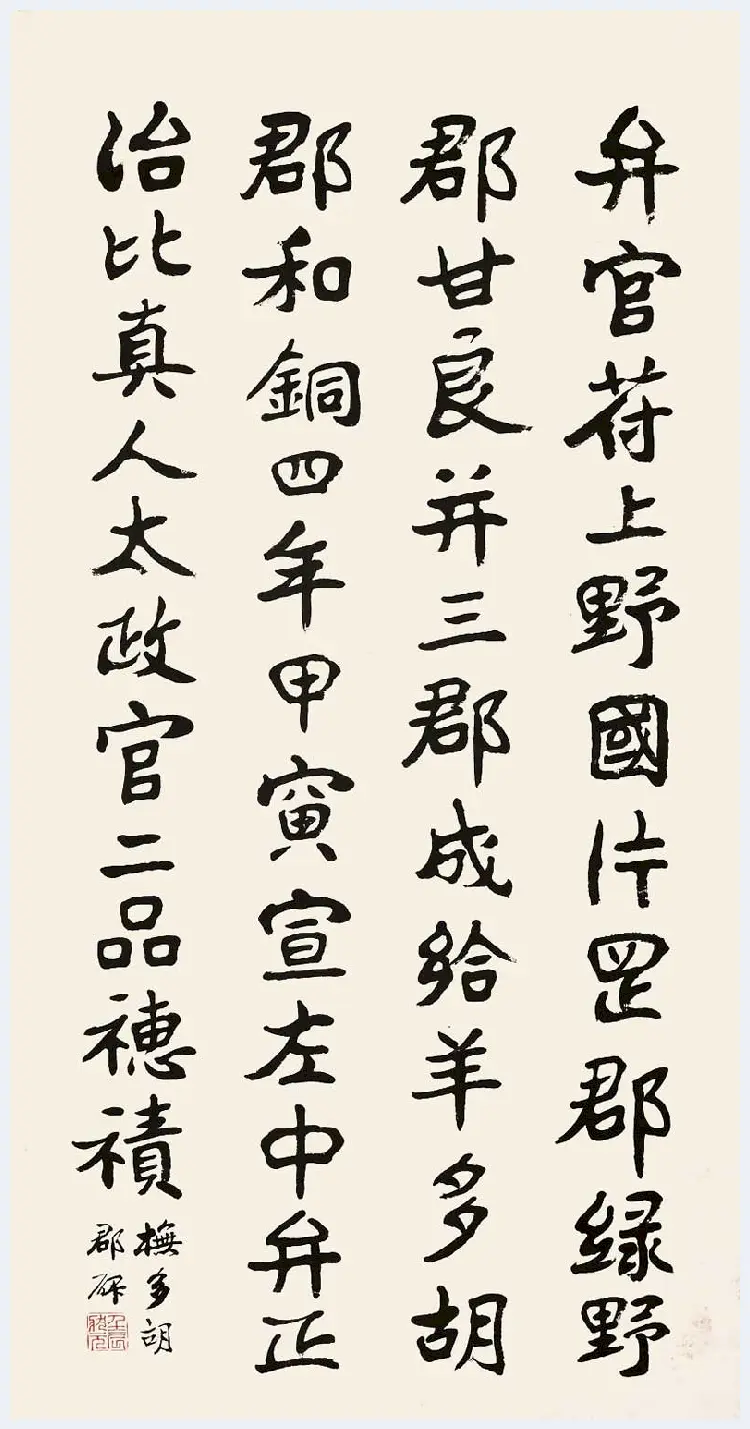 弁官荷上野國片罡郡緑野
郡甘良并三郡成給羊多胡
郡和銅四年甲寅宣左中弁正
治比真人太政官二品穗積
橅多胡
郡碑